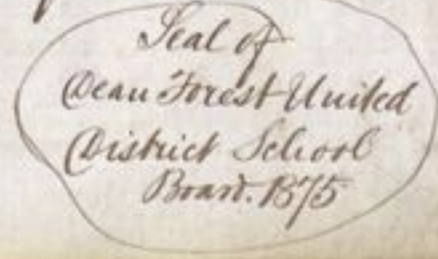 Seal of
Dean Forest United
District School
Board. 1875